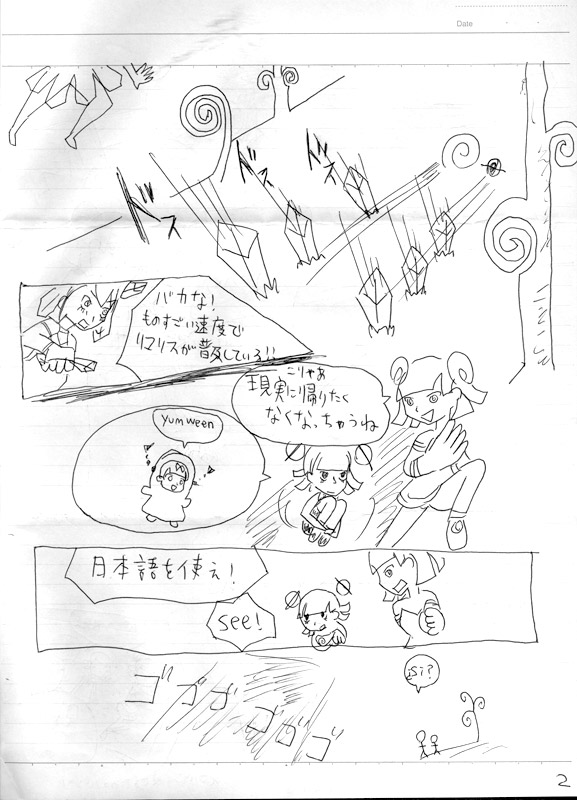 Date
ドス
ドス
ドス
バカな!
ものすごい速度で
リマリスが普及している!!
こりゃあ
現実に帰りたく
なくなっちゃうね
yum ween
日本語を使え!
see!
¿Si?
ゴゴゴ
ゴゴゴ
2